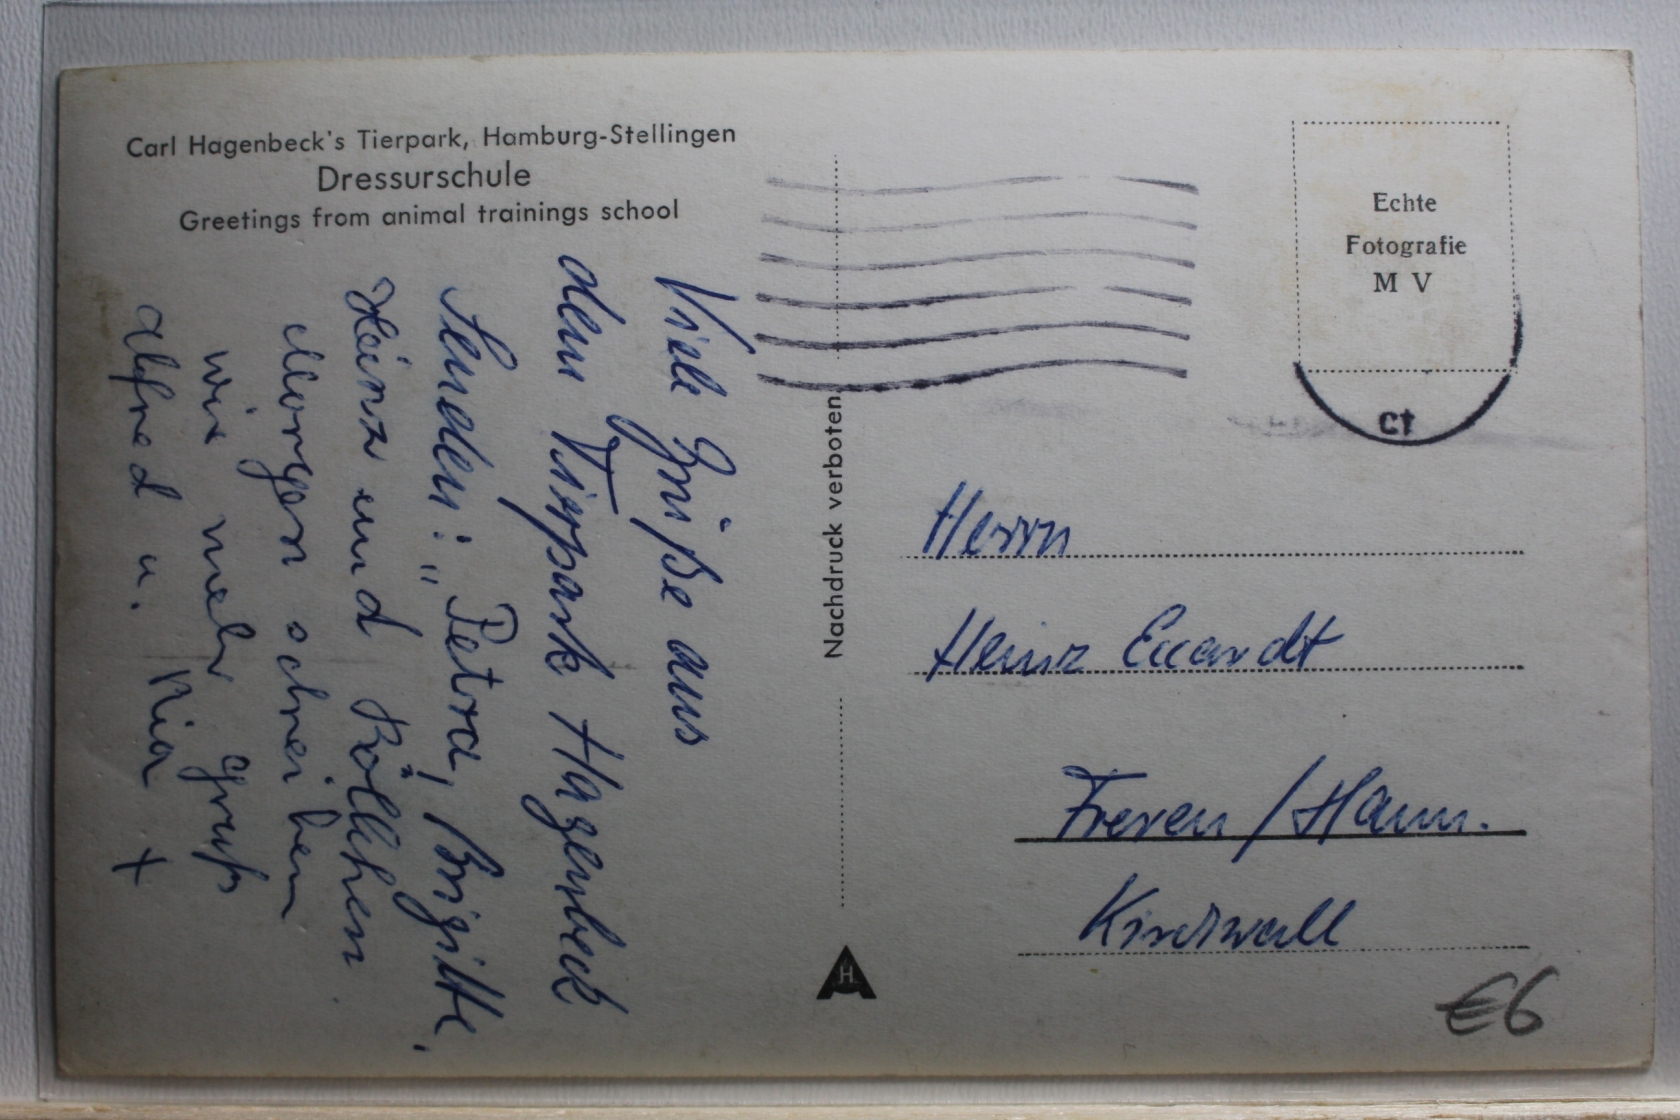 Carl Hagenbeck's Tierpark, Hamburg-Stellingen
Dressurschule
Greetings from animal trainings school
Viele Grüße aus
dem Tierpark Hagenbeck
Senden: „Petra, Brigitte,
Heinz und Röllchen
Morgen schreiben
wir mehr gruß
Alfred u. Ria +
Nachdruck verboten
H
Echte
Fotografie
M V
ct
Herrn
Heinz
Freren / Hann.
€6